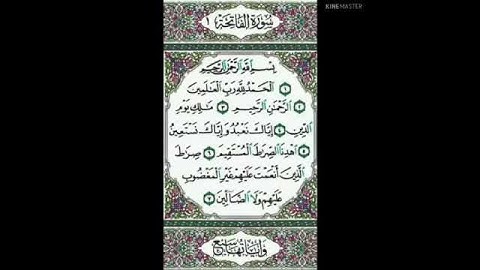 KINEMASTER
سورة الفاتحة ١
بِسْمِ اللَّهِ الرَّحْمَٰنِ الرَّحِيمِ
١ الْحَمْدُ لِلَّهِ رَبِّ الْعَالَمِينَ
٢ الرَّحْمَٰنِ الرَّحِيمِ ٣ مَالِكِ يَوْمِ
الدِّينِ ٤ إِيَّاكَ نَعْبُدُ وَإِيَّاكَ نَسْتَعِينُ
٥ اهْدِنَا الصِّرَاطَ الْمُسْتَقِيمَ ٦ صِرَاطَ
الَّذِينَ أَنْعَمْتَ عَلَيْهِمْ غَيْرِ الْمَغْضُوبِ
عَلَيْهِمْ وَلَا الضَّالِّينَ ٧
وآياتها سبع